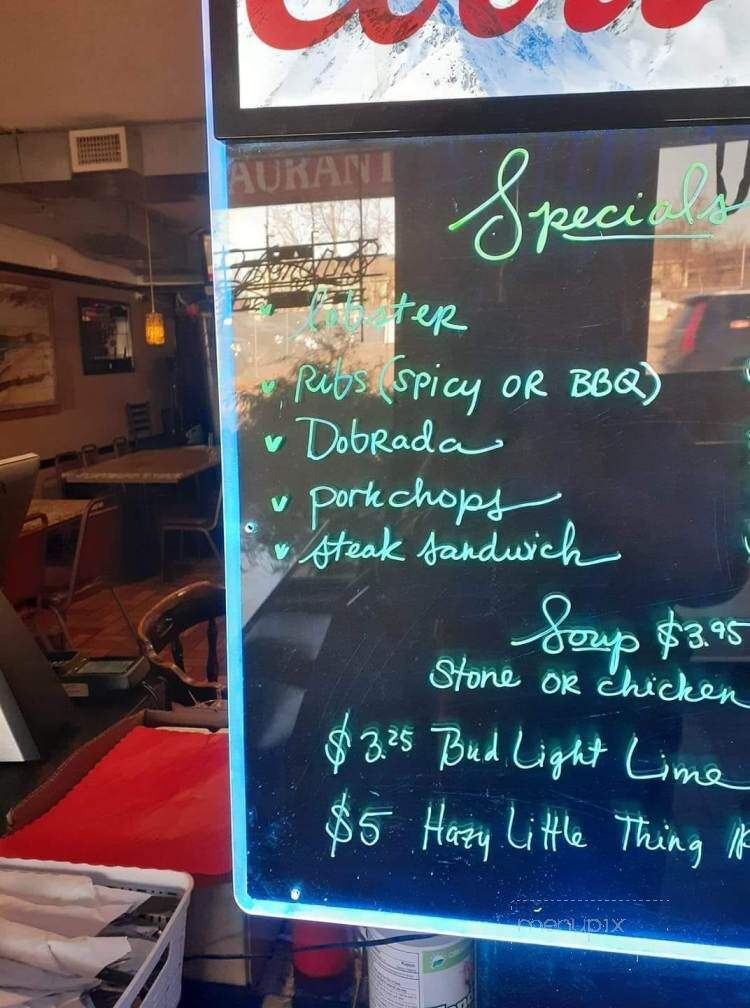 Coors
AURANT
Specials
lobster
Ribs (spicy OR BBQ)
Dobrada
porkchops
steak sandwich
Soup $3.95
Stone OR chicken
$3.25 Bud Light Lime
$5 Hazy Little Thing
menupix